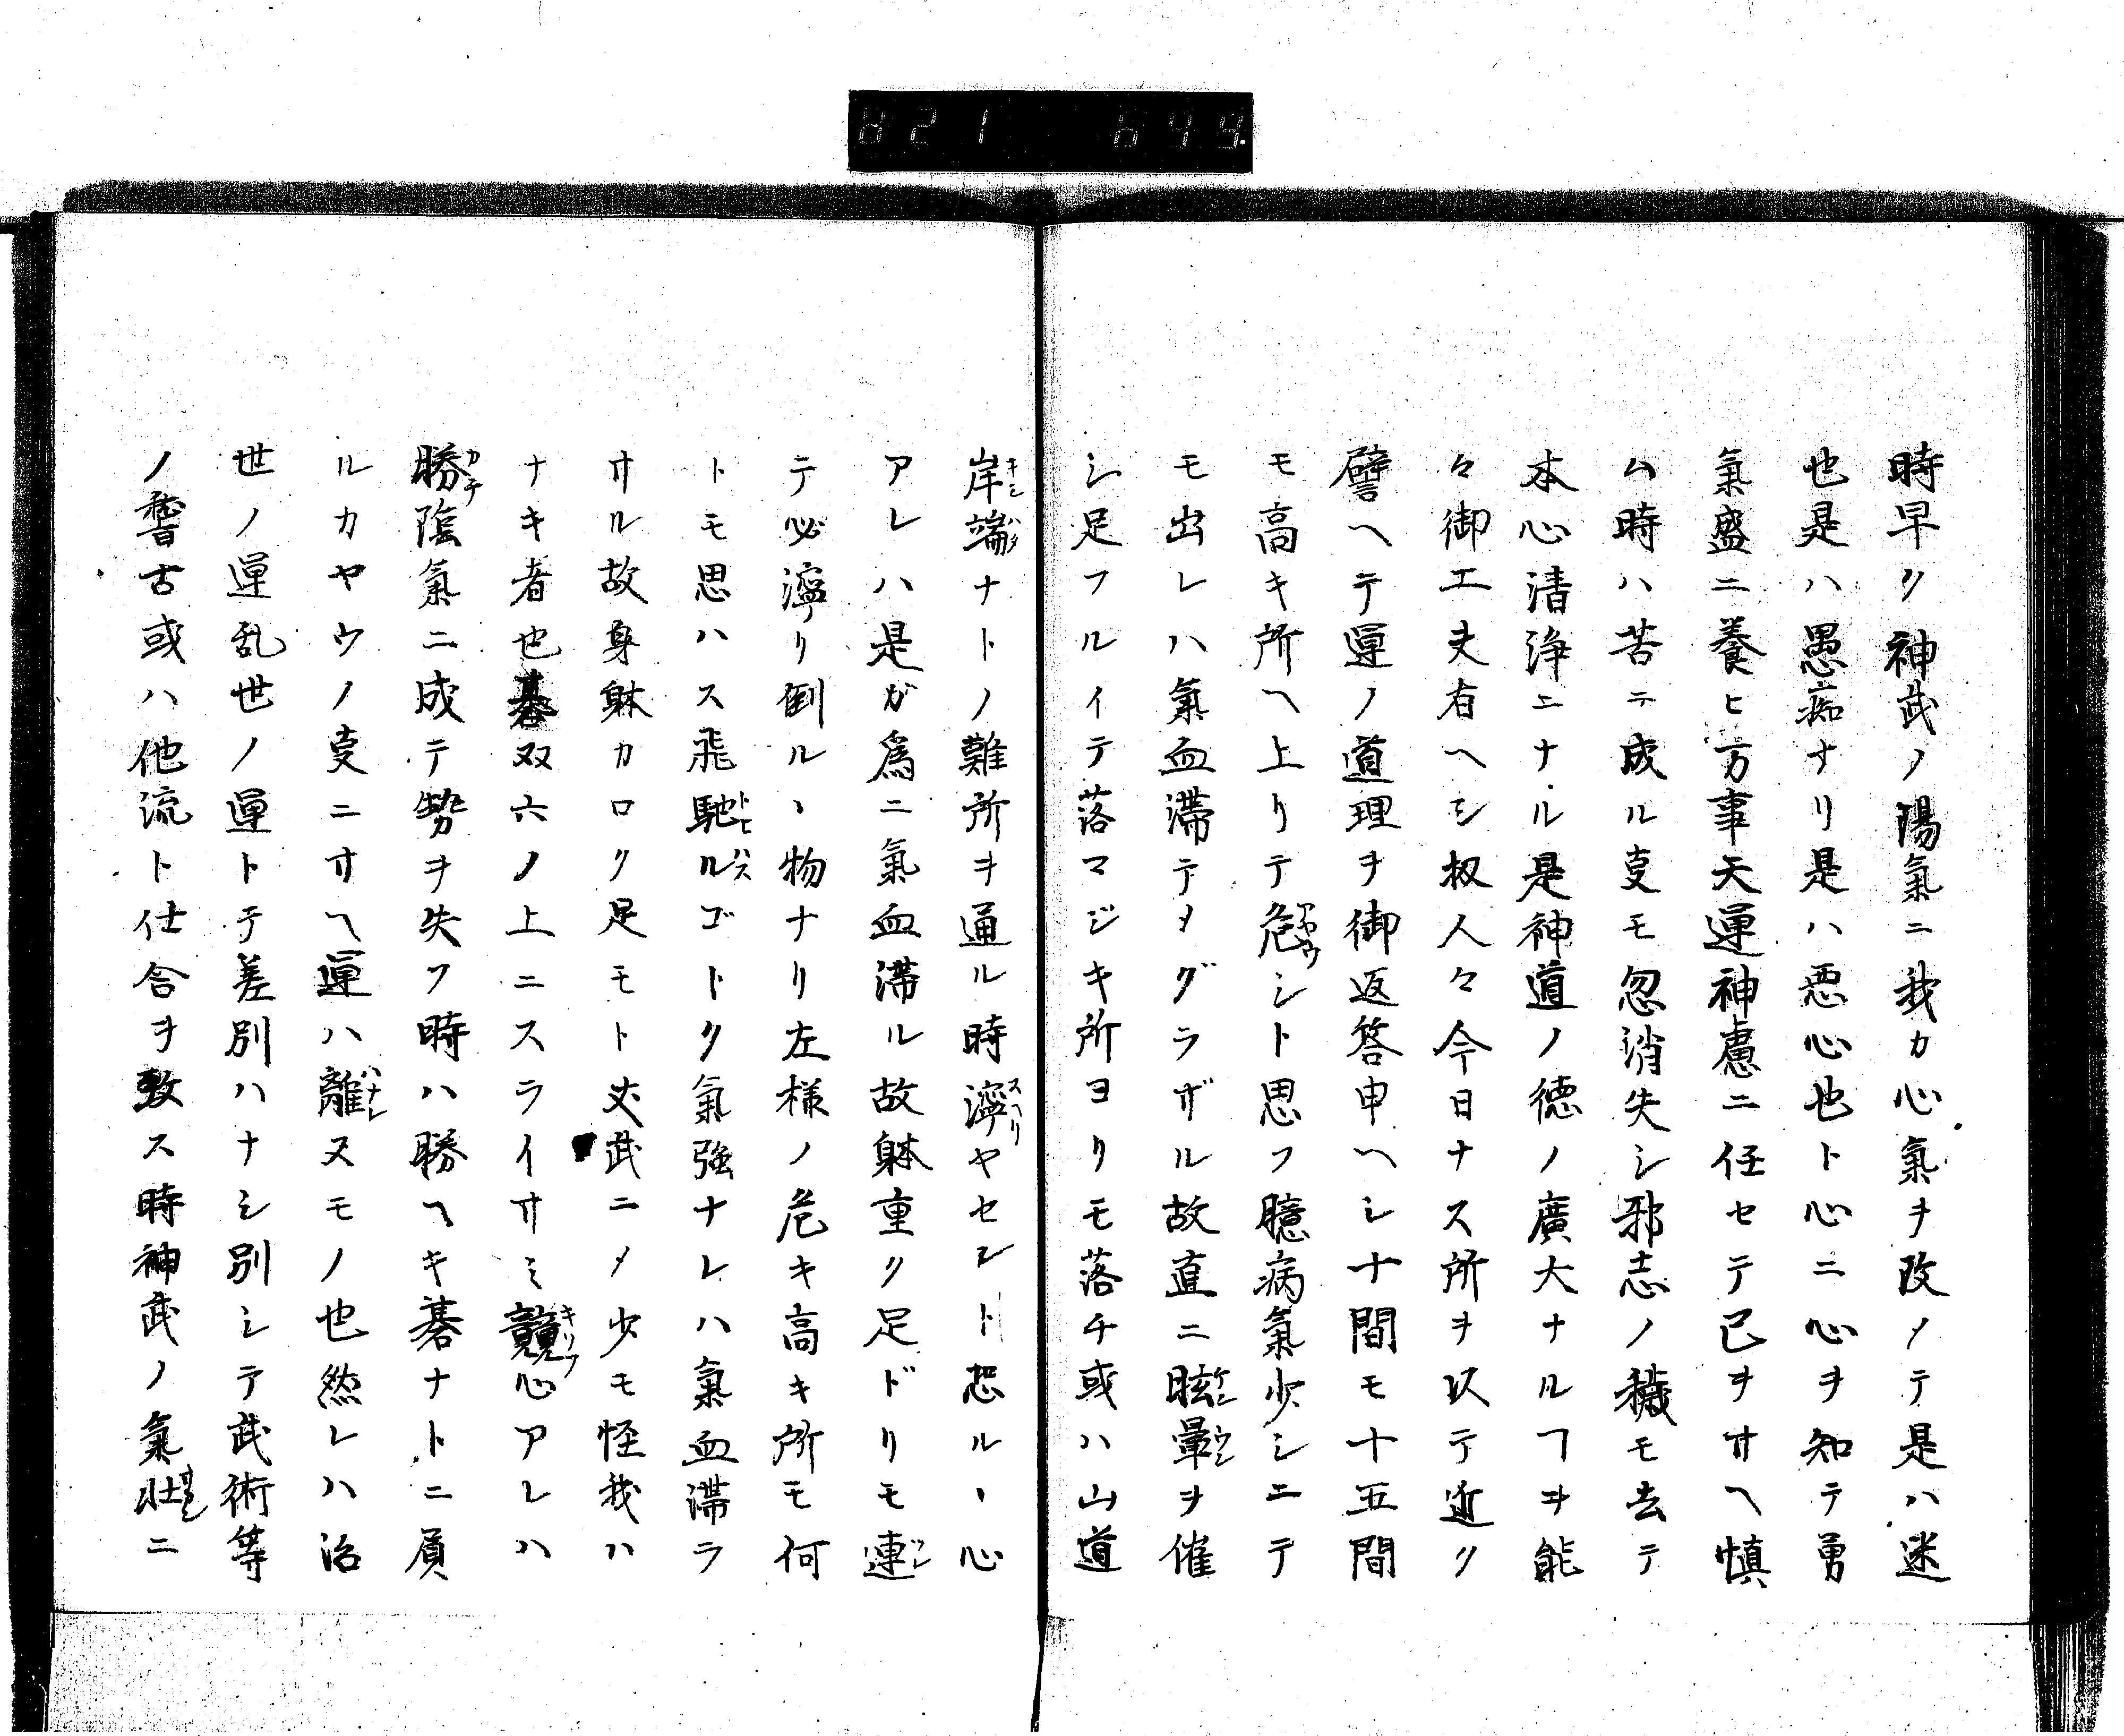 821 649
時早ク神武ノ陽氣ニ我カ心氣ヲ改メテ是ハ迷
也是ハ愚痴ナリ是ハ悪心也ト心ニ心ヲ知テ勇
氣盛ニ養ヒ万事天運神慮ニ任セテ己ヲサヘ慎
ム時ハ苦ニ成ル㕝モ忽消失シ邪志ノ穢モ去テ
本心清浄ニナル是神道ノ徳ノ廣大ナルヿヲ能
々御工夫有ヘシ扨人々今日ナス所ヲ以テ近ク
譬ヘテ運ノ道理ヲ御返答申ヘシ十間モ十五間
モ高キ所ヘ上リテ危アヤウシト思フ臆病氣少シニテ
モ出レハ氣血滞テメグラザル故直ニ眩ケン暈ウンヲ催
シ足フルイテ落マジキ所ヨリモ落チ或ハ山道
岸キシ端ハタナトノ難所ヲ通ル時濘スヘリヤセント恐ルヽ心
アレハ是ガ爲ニ氣血滞ル故躰重ク足ドリモ連
テ必濘リ倒ルヽ物ナリ左様ノ危キ高キ所モ何
トモ思ハス飛馳トヒハスルゴトク氣強ナレハ氣血滞ラ
サル故身躰カロク足モト丈武ニメ少モ怪我ハ
ナキ者也碁双六ノ上ニスライサミ競キソフ心アレハ
勝カチ陰氣ニ成テ勢ヲ失フ時ハ勝ヘキ碁ナトニ負
ルカヤウノ㕝ニサヘ運ハ離ハナレヌモノ也然レハ治
世ノ運乱世ノ運トテ差別ハナシ別シテ武術等
ノ稽古或ハ他流ト仕合ヲ致ス時神武ノ氣壮ニ